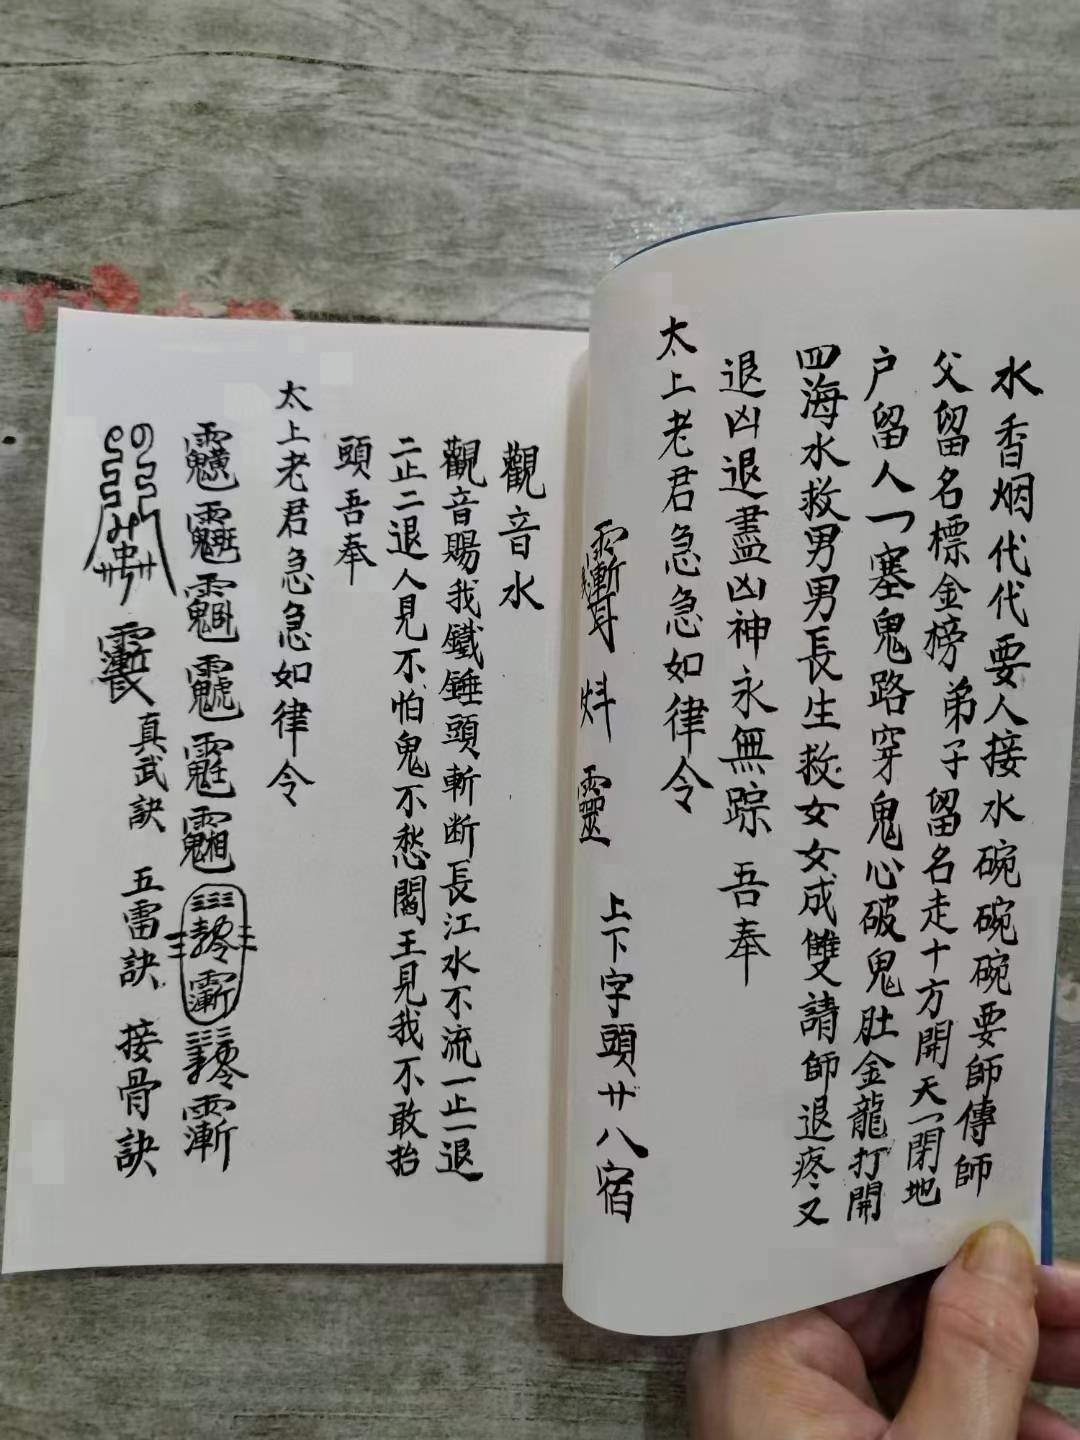 水香烟代代要人接水碗碗碗要師傳師
父留名標金榜弟子留名走十方開天一閉地
户留人一塞鬼路穿鬼心破鬼肚金龍打開
四海水救男男長生救女女成雙請師退疼又
退凶退盡凶神永無踪吾奉
太上老君急急如律令
靈 上下字頭廿八宿
觀音水
觀音賜我鐵錘頭斬断長江水不流一止一退
二止二退人見不怕鬼不愁閻王見我不敢抬
頭吾奉
太上老君急急如律令
真武訣 五雷訣 接骨訣